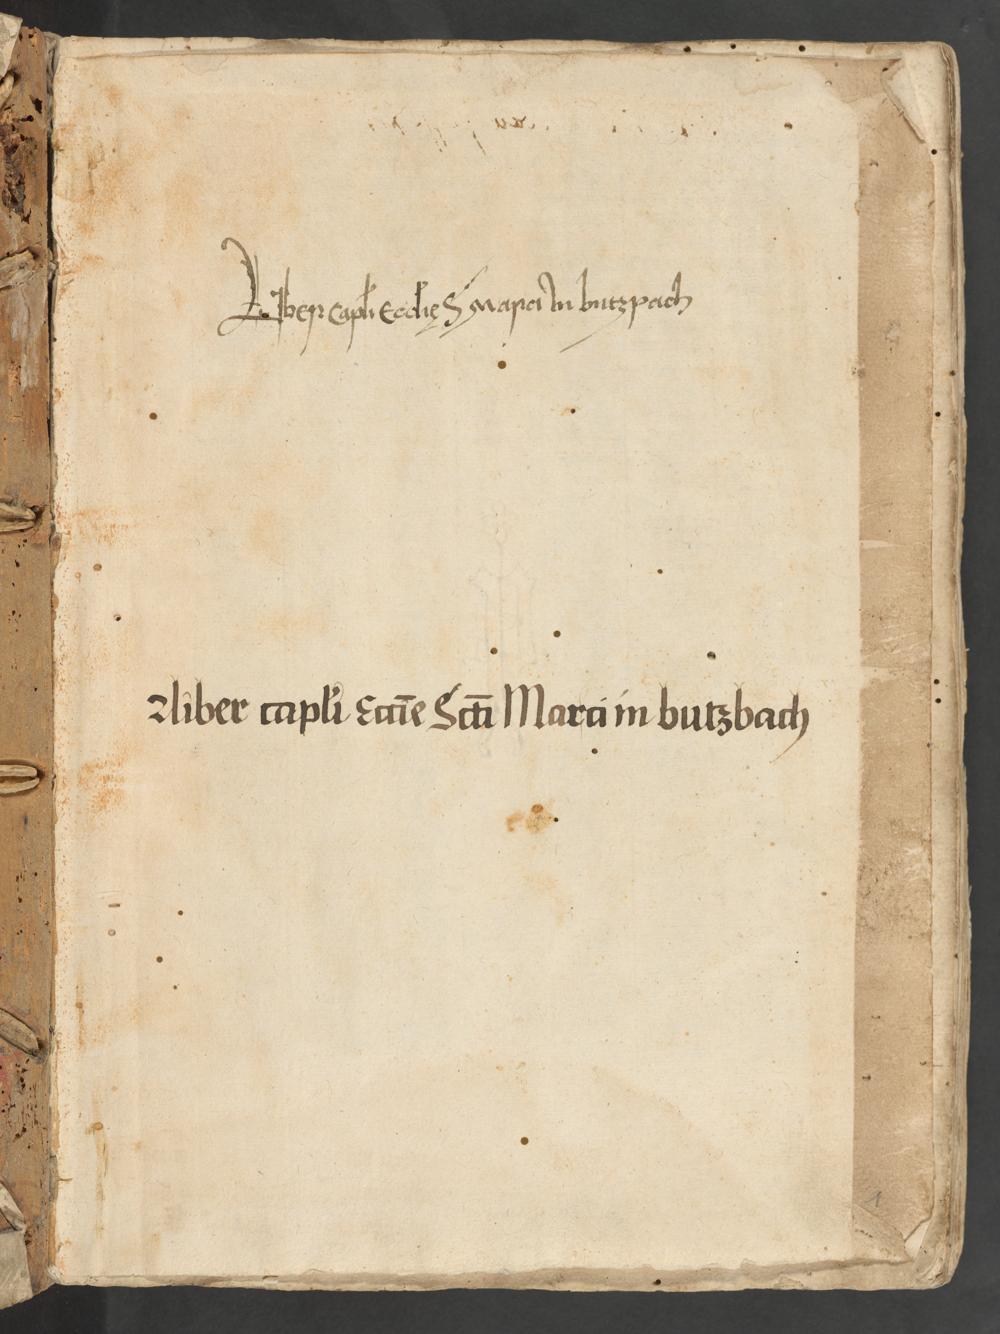 Liber capłi Eccłię S Marci In butzpach
liber capłi Eccīe Sctī Marci in butzbach
1